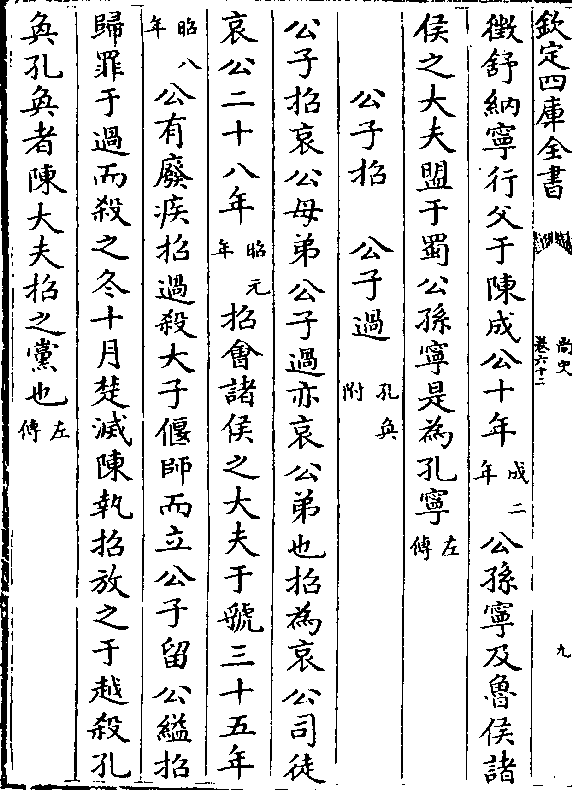 欽定四庫全書
尚史
卷六十二
九
徵舒納寧行父于陳成公十年成二年公孫寧及魯侯諸
侯之大夫盟于蜀公孫寧是為孔寧左傳
公子招 公子過孔奐附
公子招哀公母弟公子過亦哀公弟也招為哀公司徒
哀公二十八年昭元年招會諸侯之大夫于虢三十五年
昭八年公有廢疾招過殺大子偃師而立公子留公縊招
歸罪于過而殺之冬十月楚滅陳執招放之于越殺孔
奐孔奐者陳大夫招之黨也左傳